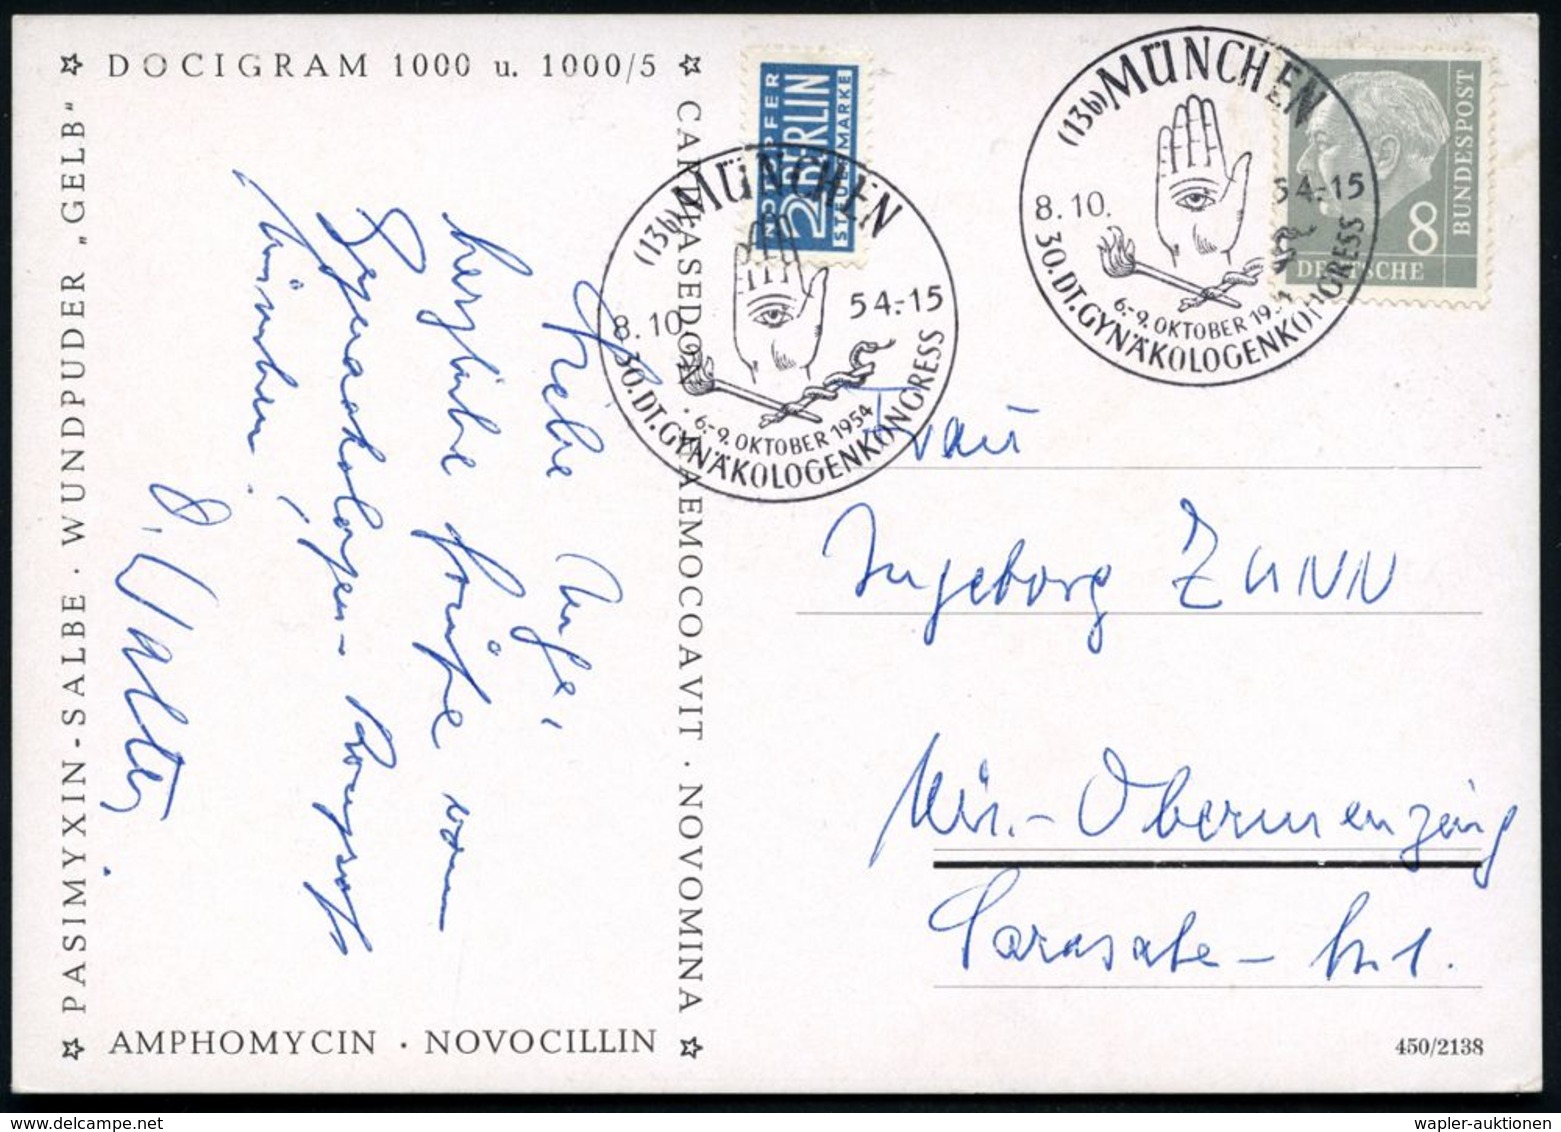 ☆ DOCIGRAM 1000 u. 1000/5 ☆
PASIMYXIN-SALBE · WUNDPUDER „GELB"
AEMOCOAVIT · NOVOMINA
☆ AMPHOMYCIN · NOVOCILLIN ☆
Liebe Inge,
herzliche Grüße vom
Gynaekologen-Kongress
München,
D. Walter
NOTOPFER
2 BERLIN
STEUERMARKE
(13b) MÜNCHEN
8.10. 54.-15
· 6.-9. OKTOBER 1954
30. DT. GYNÄKOLOGENKONGRESS
(13b) MÜNCHEN
8.10. 54.-15
6.-9. OKTOBER 1954
30. DT. GYNÄKOLOGENKONGRESS
DEUTSCHE
BUNDESPOST
8
Frau
Ingeborg ZANN
Mü.-Obermenzing
Sarasate-Str. 1.
450/2138
wapler-auktionen